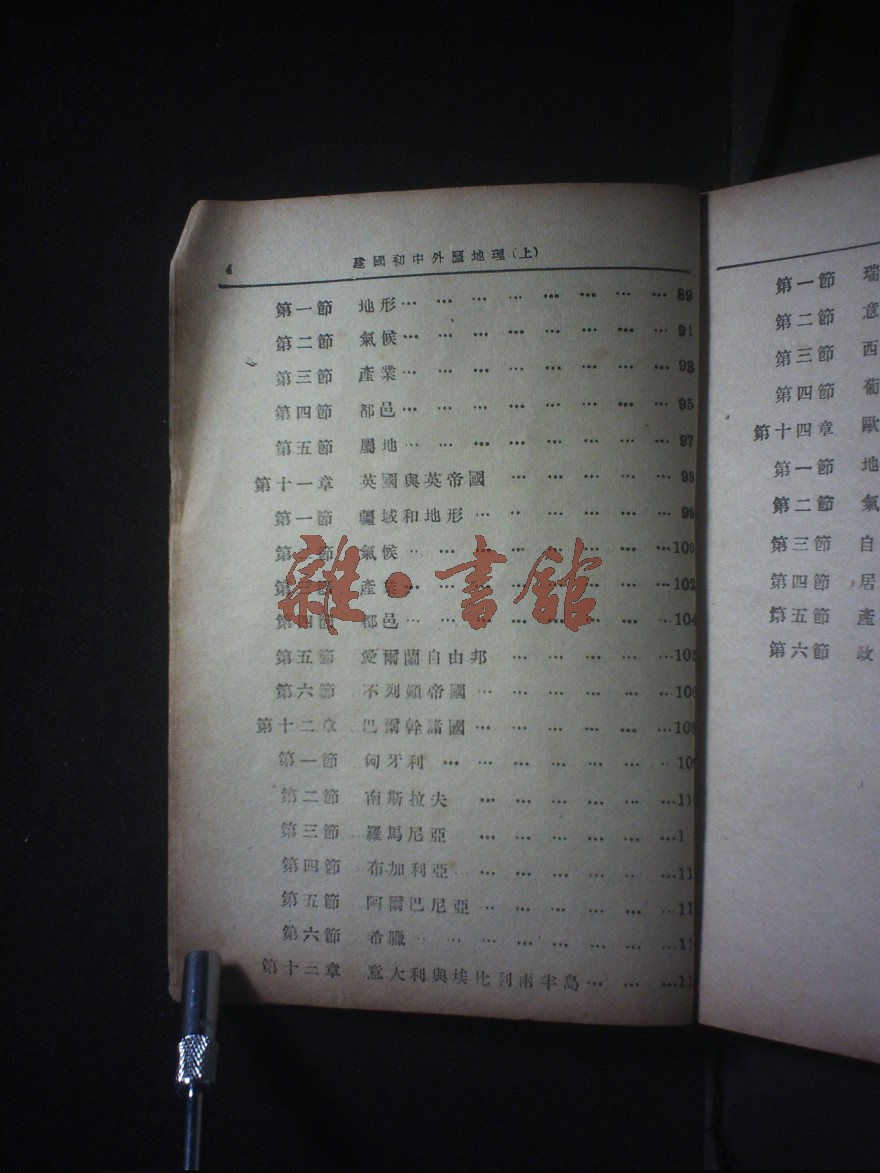 4
建國初中外國地理(上)
第一節 地形… … … … … … … … 89
第二節 氣候… … … … … … … … 91
第三節 產業… … … … … … … … 93
第四節 都邑… … … … … … … … 95
第五節 屬地… … … … … … … … 97
第十一章 英國與英帝國 … … … … … 98
第一節 疆域和地形… … … … … … 99
第二節 氣候… … … … … … … … 100
第三節 產業… … … … … … … … 102
第四節 都邑… … … … … … … …104
第五節 愛爾蘭自由邦 … … … … …105
第六節 不列顛帝國… … … … … … 106
第十二章 巴爾幹諸國… … … … … …108
第一節 匈牙利 … … … … … … … 109
第二節 南斯拉夫 … … … … … …11
第三節 羅馬尼亞 … … … … … …1
第四節 布加利亞… … … … … … …11
第五節 阿爾巴尼亞… … … … … … 11
第六節 希臘… … … … … … … …11
第十三章 意大利與埃比利南半島… … …11
雜·書館
第一節 瑞
第二節 意
第三節 西
第四節 葡
第十四章 歐
第一節 地
第二節 氣
第三節 自
第四節 居
第五節 產
第六節 政